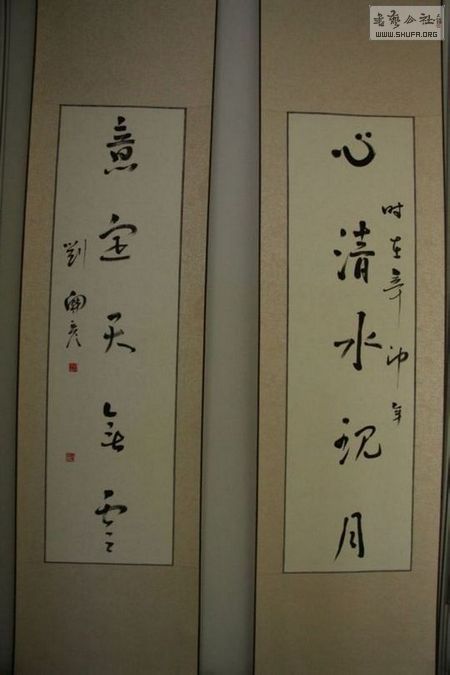 心清水现月
时在辛卯年
意定天无云
書藝公社
WWW.SHUFA.ORG